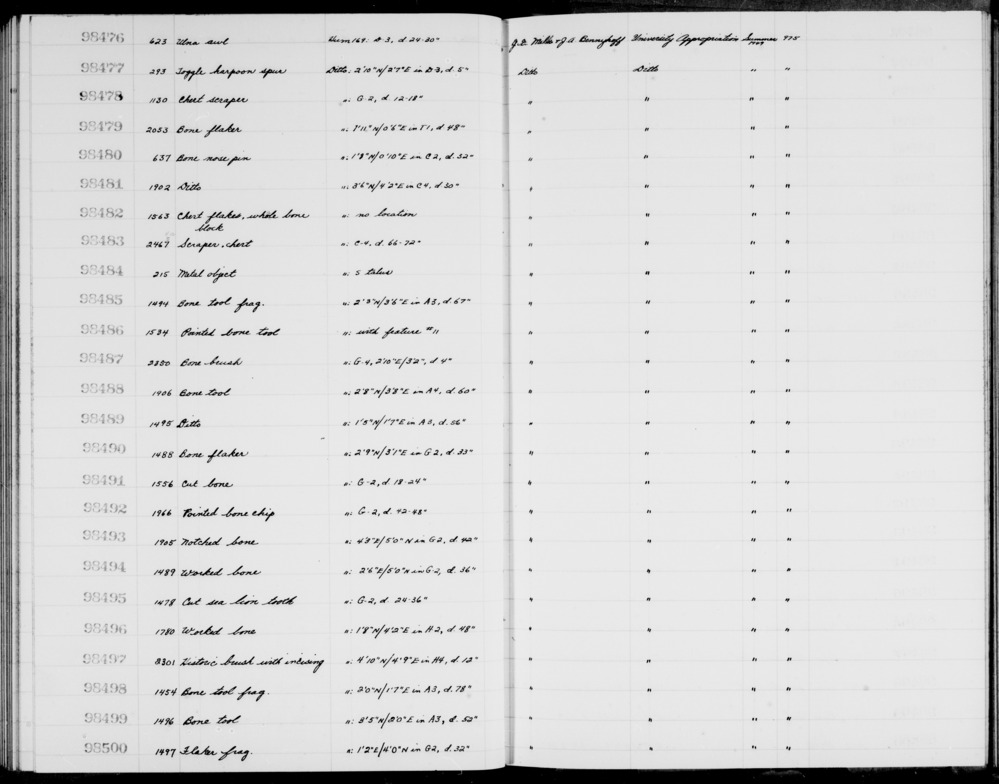 98476 623 Ulna awl Hum 169: D-3, d. 24-30" J.E. Mills & J.A. Bennyhoff University Appropriation Summer 1949 775
98477 293 Toggle harpoon spur Ditto: 2'10"N/2'7"E in D-3, d. 5" Ditto Ditto " "
98478 1130 Chert scraper ": G-2, d. 12-18" " " " "
98479 2053 Bone flaker ": 1'11"N/0'6"E in F1, d. 48" " " " "
98480 637 Bone nose pin ": 1'8"N/0'10"E in C2, d. 52" " " " "
98481 1902 Ditto ": 3'6"N/4'2"E in C4, d. 30" " " " "
98482 1563 Chert flakes, whole bone ": no location " " " "
block
98483 2467 Scraper, chert ": C-4, d. 66-72" " " " "
98484 215 Metal object ": S talus " " " "
98485 1494 Bone tool frag. ": 2'3"N/3'6"E in A3, d. 67" " " " "
98486 1534 Pointed bone tool ": with feature #11 " " " "
98487 2350 Bone brush ": G-4, 2'10"E/3'2", d. 4" " " " "
98488 1906 Bone tool ": 2'8"N/3'8"E in A4, d. 60" " " " "
98489 1495 Ditto ": 1'5"N/1'7"E in A3, d. 56" " " " "
98490 1488 Bone flaker ": 2'9"N/3'1"E in G2, d. 33" " " " "
98491 1556 Cut bone ": G-2, d. 18-24" " " " "
98492 1966 Pointed bone chip ": G-2, d. 42-48" " " " "
98493 1905 Notched bone ": 4'3"E/5'0"N in G2, d. 42" " " " "
98494 1489 Worked bone ": 2'6"E/5'0"N in G-2, d. 36" " " " "
98495 1478 Cut sea lion tooth ": G-2, d. 24-36" " " " "
98496 1780 Worked bone ": 1'8"N/4'2"E in H2, d. 48" " " " "
98497 2301 Historic brush with incising ": 4'10"N/4'9"E in H4, d. 12" " " " "
98498 1454 Bone tool frag. ": 2'0"N/1'7"E in A3, d. 78" " " " "
98499 1496 Bone tool ": 3'5"N/2'0"E in A3, d. 52" " " " "
98500 1497 Flaker frag. ": 1'2"E/4'0"N in G2, d. 32" " " " "